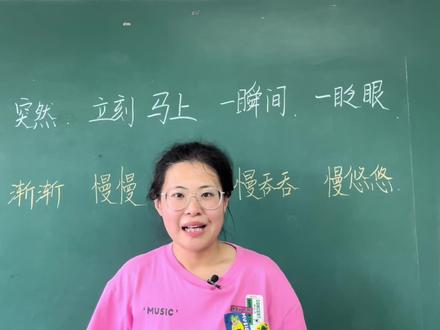 突然. 立刻 马上 一瞬间. 一眨眼.
渐渐 慢慢 慢吞吞 慢悠悠.
"MUSIC"